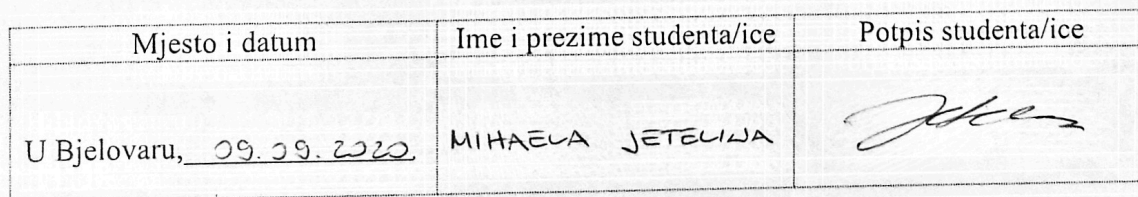 Mjesto i datum Ime i prezime studenta/ice Potpis studenta/ice
U Bjelovaru, 09.09.2020 MIHAELA JETELINA